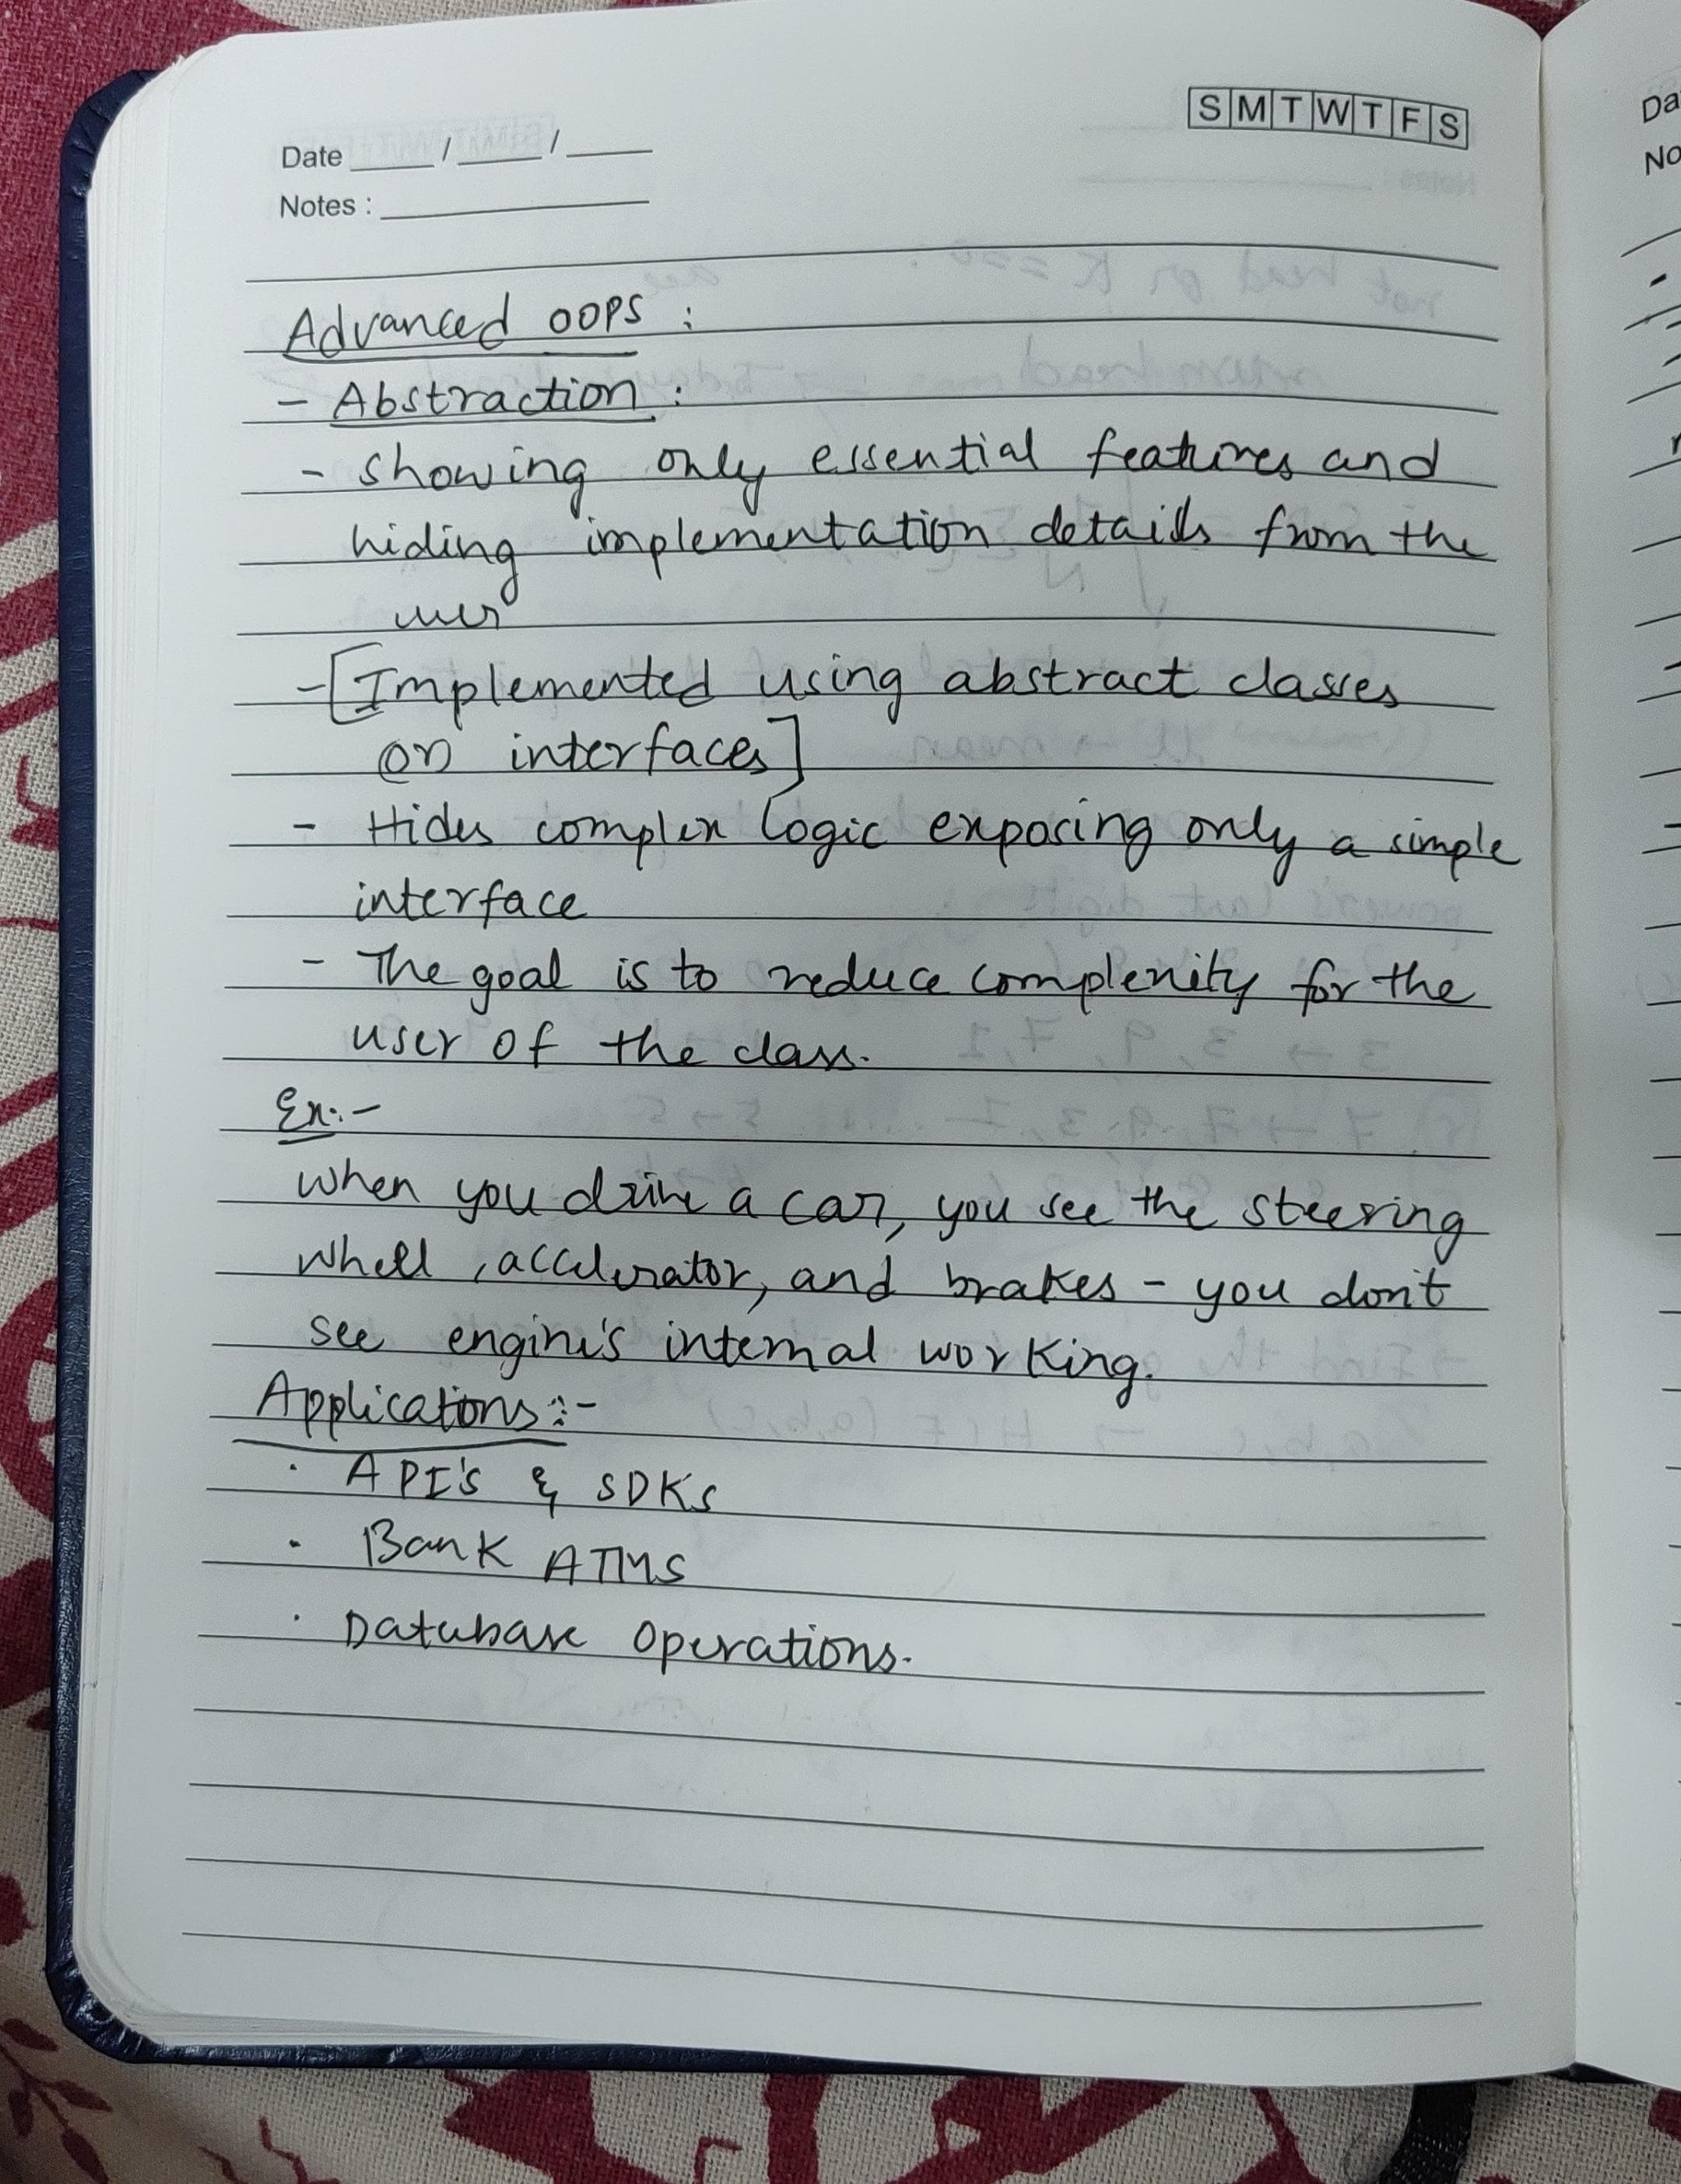 S M T W T F S
Date ____ / ____ / ____
Notes : ____
Advanced OOPS :
- Abstraction :
- showing only essential features and
hiding implementation details from the
user
- [Implemented using abstract classes
or interfaces]
- Hides complex logic exposing only a simple
interface
- The goal is to reduce complexity for the
user of the class.
Ex:-
when you drive a car, you see the steering
wheel, accelerator, and brakes - you don't
see engine's internal working.
Applications:-
· API's & SDKs
· Bank ATMS
· Database Operations.
Da
No